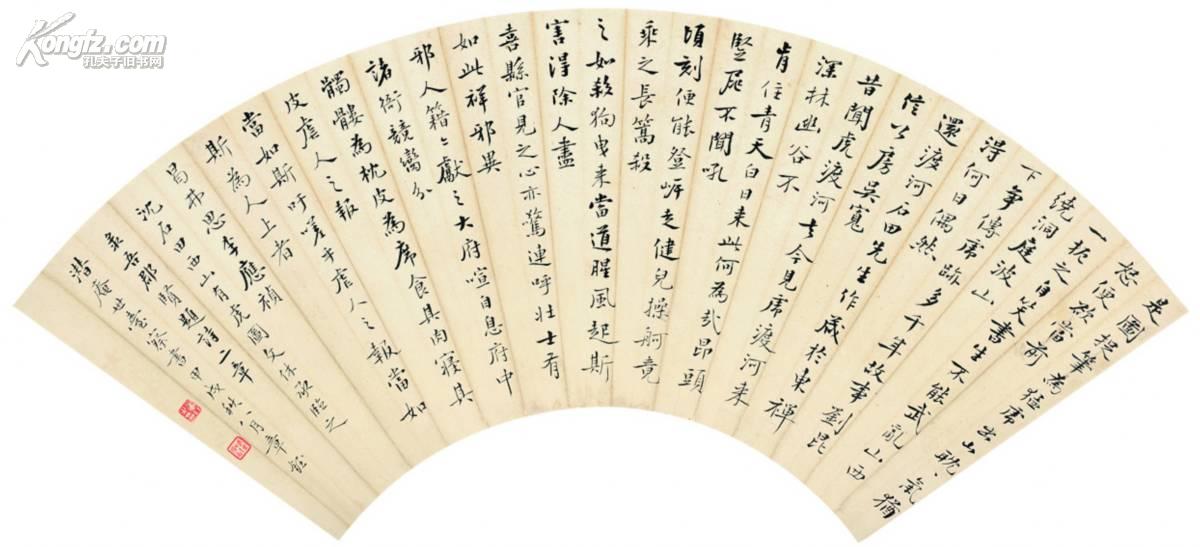 是圖提筆為猛虎出山耽〻氣猶
怒便欲當前
一扼之自笑書生不能武亂山西
繞洞庭波山
下爭傳虎跡多千年故事劉昆
得何日偶然
還渡河石田先生作歲於東禪
信公房吳寬
昔聞虎渡河去今見虎渡河來
深林幽谷不
肯住青天白日來此何為哉昂頭
豎尾不聞吼
頃刻便能登岸走健兒操舸竟
乘之長篙殺
之如殺狗曳來當道腥風起斯
害得除人盡
喜縣官見之心亦驚連呼壯士有
如此祥邪異
邪人籍〻獻之大府喧自息府中
諸衙競臠分
髑髏為枕皮為席食其肉寢其
皮虐人之報
當如斯吁嗟乎虐人之報當如
斯為人上者
曷弗思李應禎
沈石田西山有虎圖文休承臨之
吾郡賢題詩二章
潛庵世臺察書甲戌秋八月章鈺
Kongfz.com
孔夫子旧书网